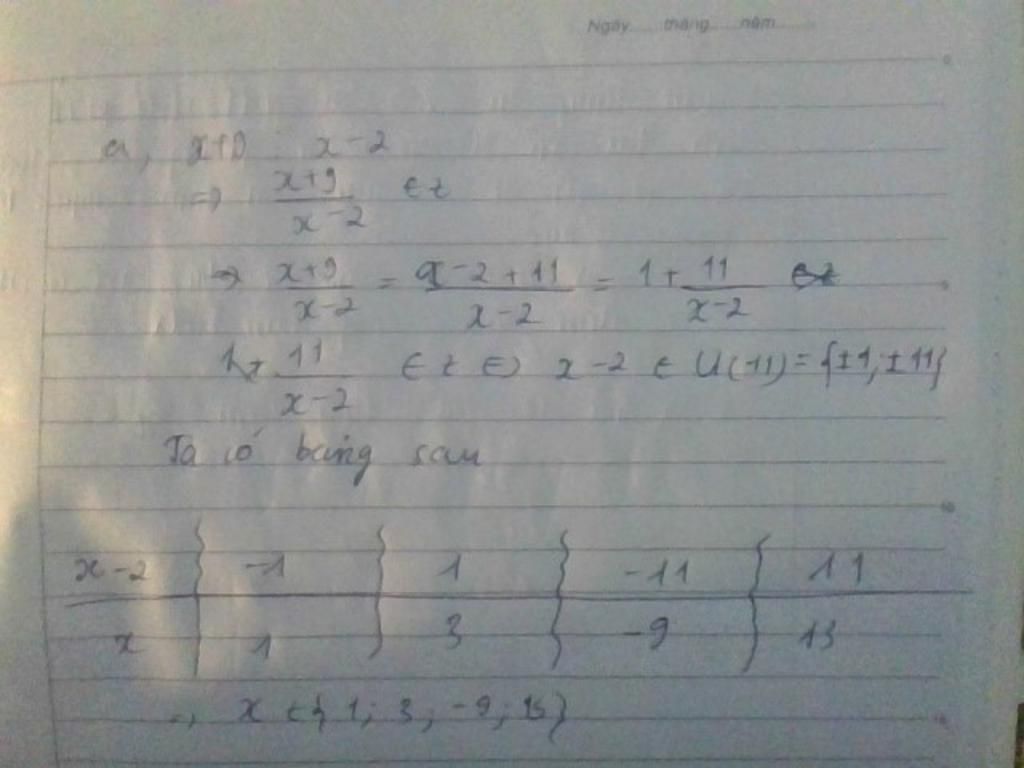 Ngày tháng năm
a, x+9 ⋮ x-2
=> x+9/x-2 ∈ Z
=> x+9/x-2 = x-2+11/x-2 = 1 + 11/x-2
1 + 11/x-2 ∈ Z <=> x-2 ∈ Ư(11) = {±1; ±11}
Ta có bảng sau
x-2 -1 1 -11 11
x 1 3 -9 13
=> x ∈ { 1; 3; -9; 13}